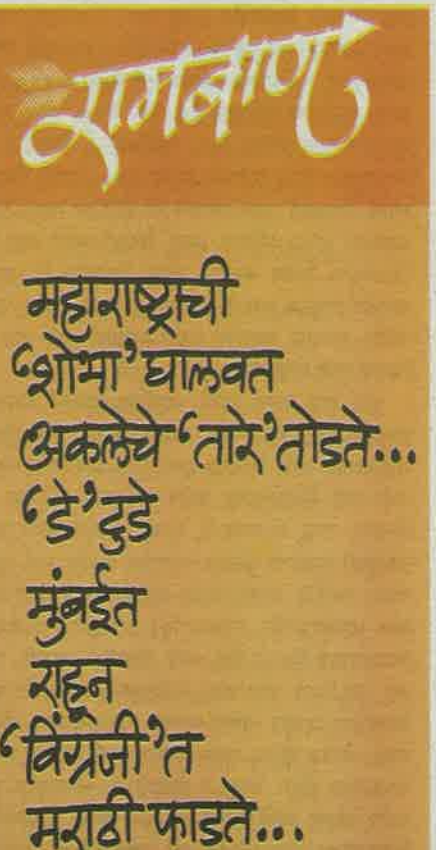 रामबाण
महाराष्ट्राची
‘शोभा’ घालवत
अकलेचे ‘तारे’ तोडते...
‘डे’ टुडे
मुंबईत
राहून
‘विंग्रजी’त
मराठी फाडते...